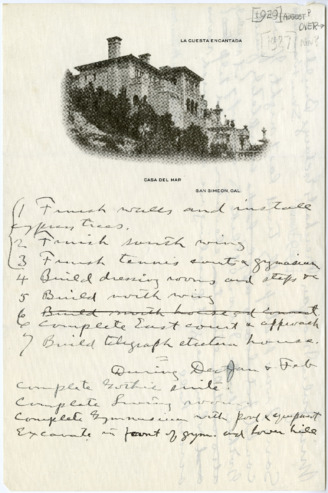 [1929] AUGUST?
OVER→
[1927]
LA CUESTA ENCANTADA
CASA DEL MAR
SAN SIMEON, CAL.
1 Finish walls and install
Cypress trees.
2 Finish south wing
3 Finish tennis court & gymnasium
4 Build dressing rooms and steps &c
5 Build north wing
6 Build north house and
6 Complete East court & approach
7 Build telegraph electric house.
During Dec Jan & Feb
Complete Gothic suite
Complete Living room
Complete Gymnasium with pool & equipment
Excavate in front of gym. and lower hill